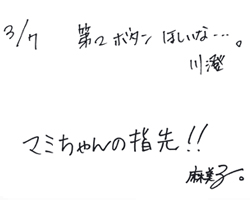 3/7 第2ボタン ほしいな…。
川澄
マミちゃんの指先!!
麻美子。